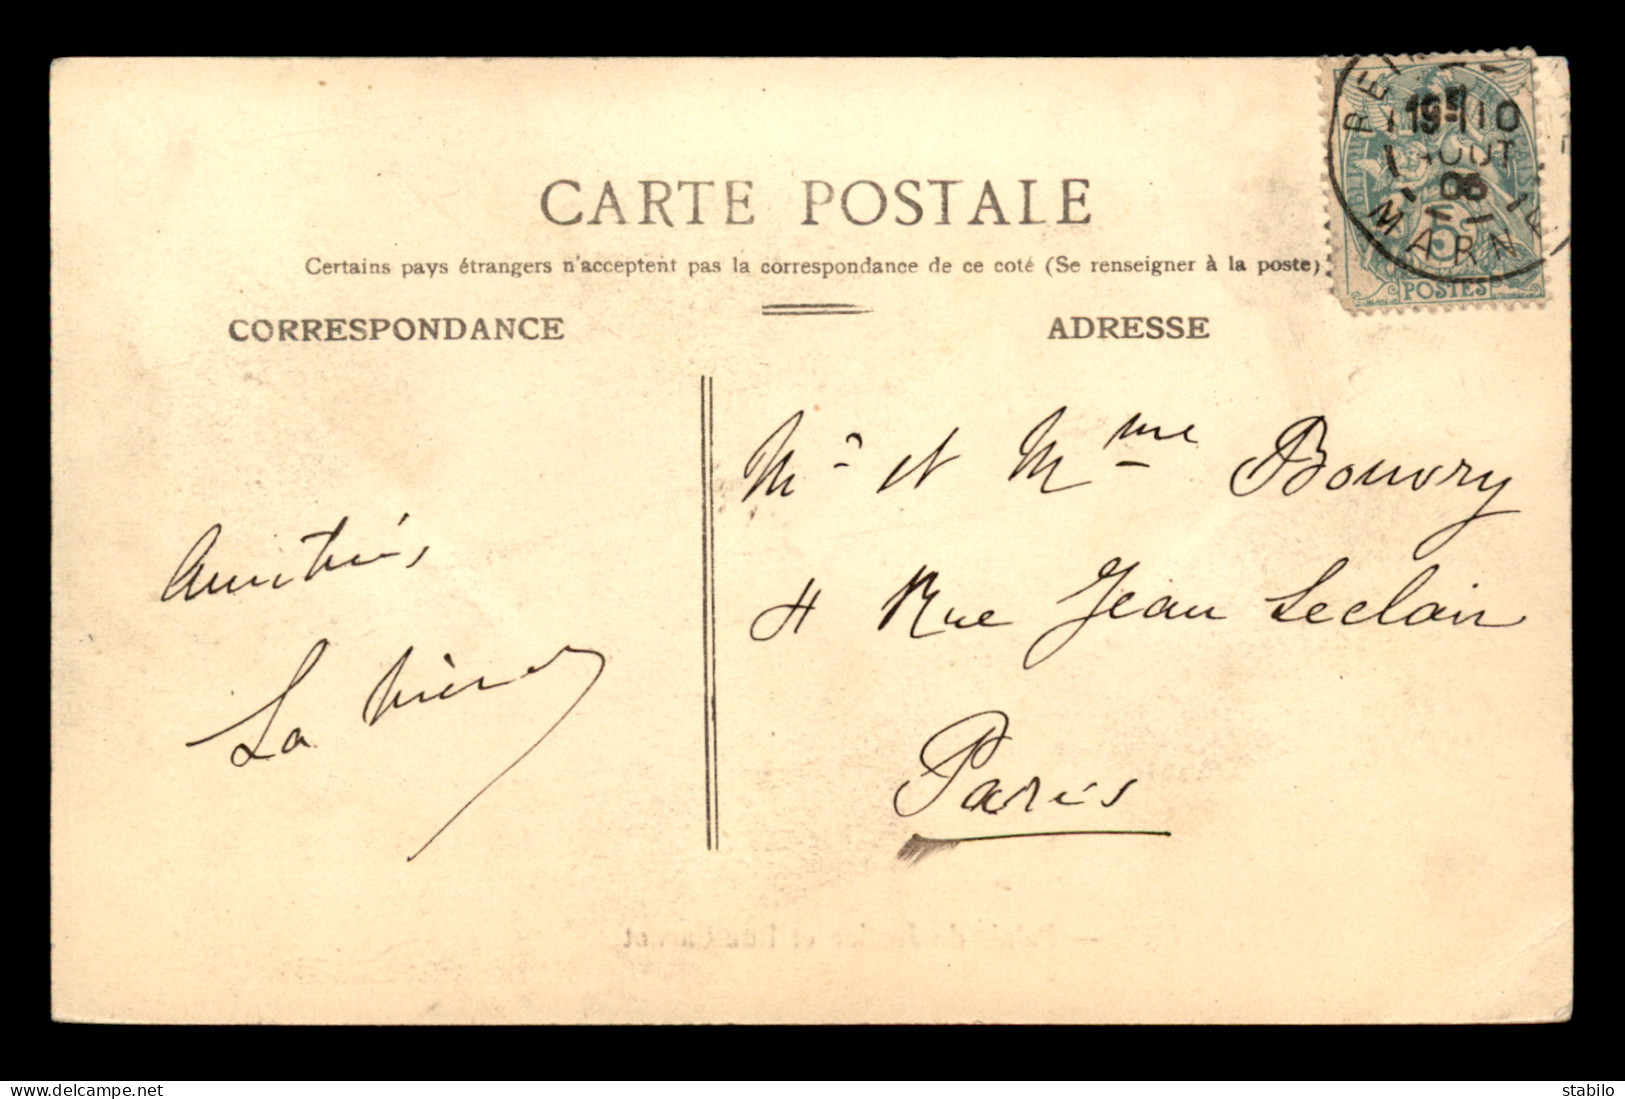 CARTE POSTALE
Certains pays étrangers n'acceptent pas la correspondance de ce coté (Se renseigner à la poste)
CORRESPONDANCE
ADRESSE
10
AOUT
06
MARNE
5
POSTES
Mr et Mme Bouvry
4 Rue Jean Leclair
Paris
Amitiés
La
delcampe.net
stabilo